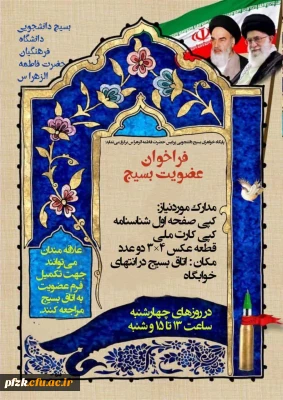 بسیج دانشجویی
دانشگاه
فرهنگیان
حضرت فاطمه
الزهرا س
فراخوان
عضویت بسیج
مدارک موردنیاز:
کپی صفحه اول شناسنامه
کپی کارت ملی
قطعه عکس ۴×۳ دو عدد
مکان : اتاق بسیج در انتهای
خوابگاه
علاقه مندان
می‌توانند
جهت تکمیل
فرم عضویت
به اتاق بسیج
مراجعه کنند..
در روزهای چهارشنبه
ساعت ۱۳ تا ۱۵ و شنبه
pfzk.cfu.ac.ir